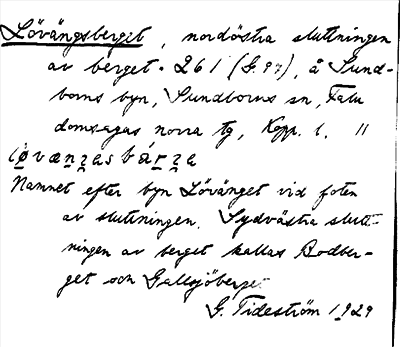 Lövängsberget, nordöstra sluttningen
av berget 261 (G.97), å Sund-
borns byn, Sundborns sn, Falu
domsagas norra tg, Kopp. l. "
Namnet efter byn Lövänget vid foten
av sluttningen. Sydvästra slutt-
ningen av berget kallas Bodber-
get och Gallsjöberget
G. Tideström 1929